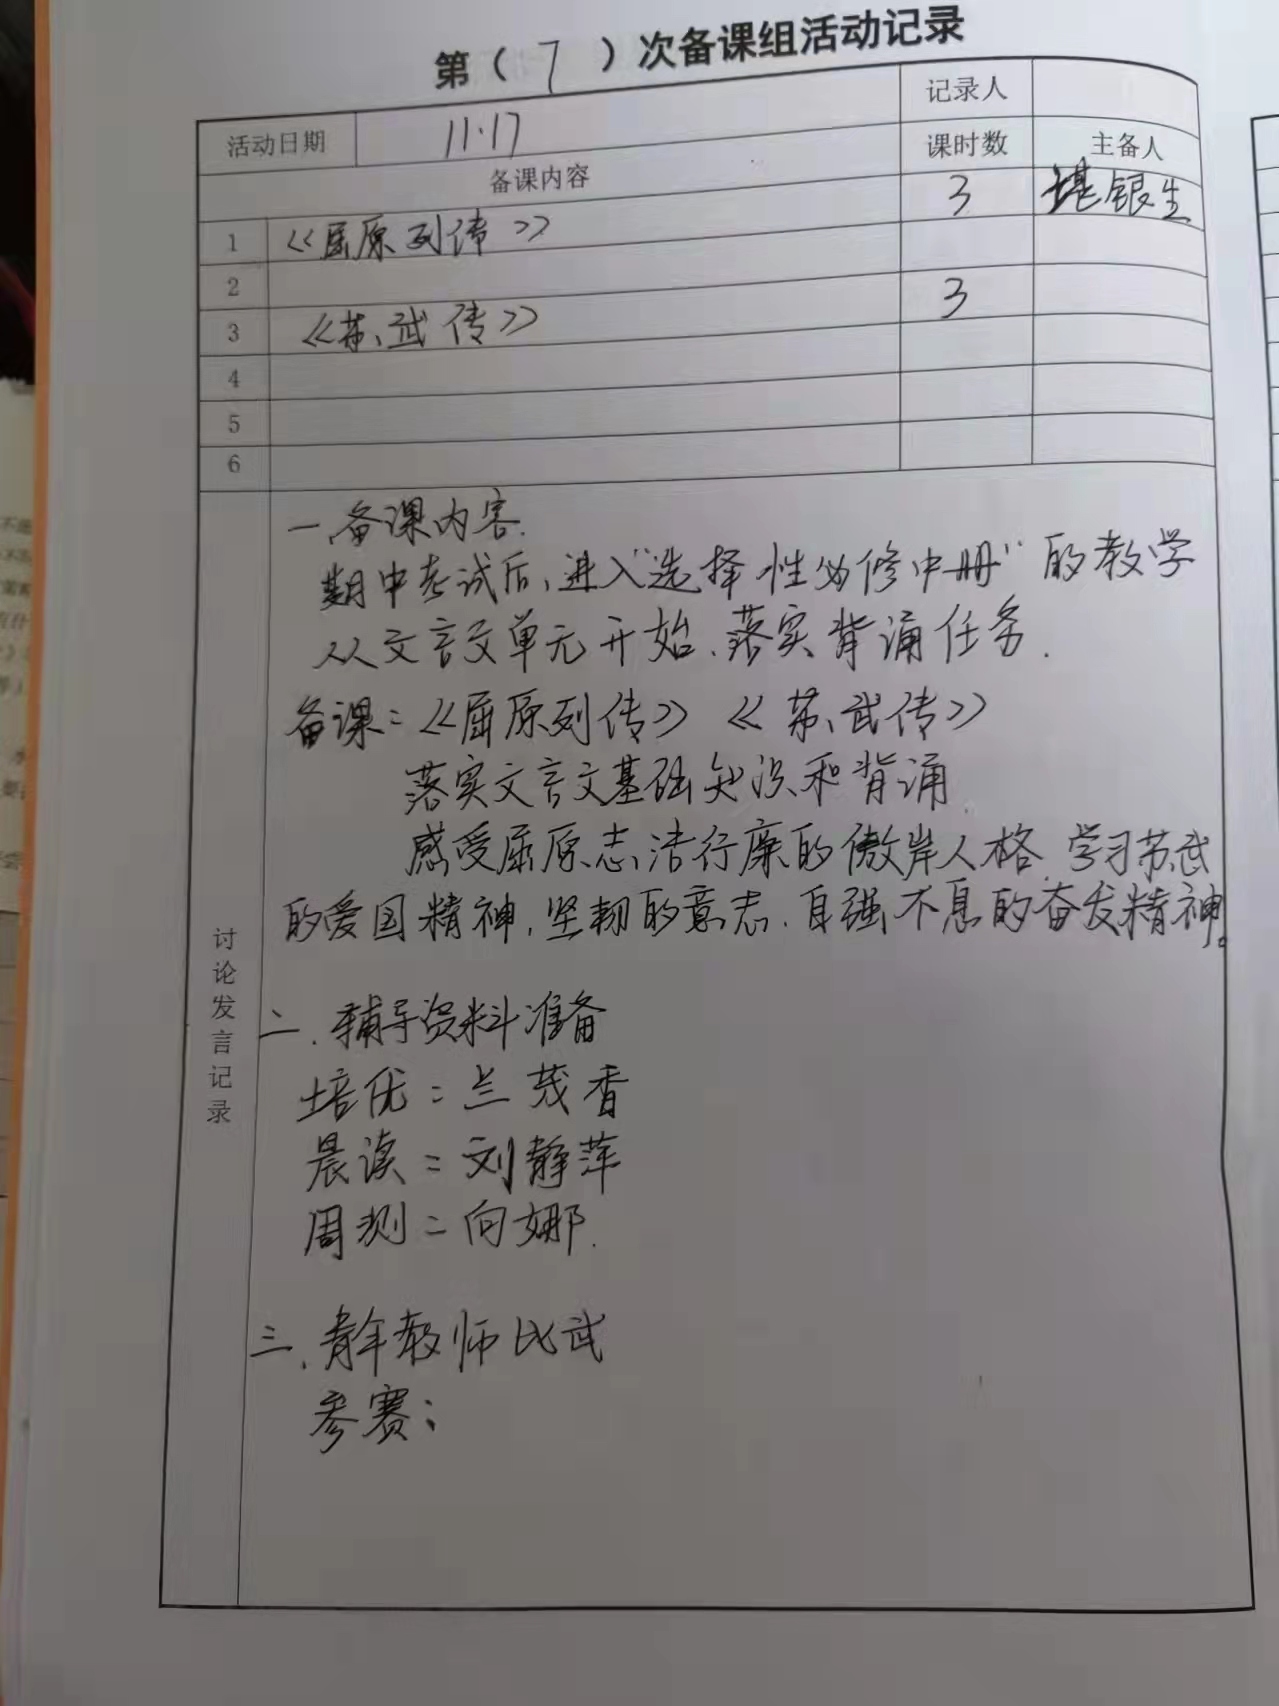 第（ 7 ）次备课组活动记录
活动日期 11.17 记录人
备课内容 课时数 主备人
1 《屈原列传》 3 银生
2
3 《苏武传》 3
4
5
6
讨论发言记录
一、备课内容.
期中考试后，进入“选择性必修中册”的教学
从文言文单元开始、落实背诵任务.
备课：《屈原列传》《苏武传》
落实文言文基础知识和背诵
感受屈原志洁行廉的傲岸人格.学习苏武
的爱国精神，坚韧的意志、自强不息的奋发精神。
二、辅导资料准备
培优：兰茂香
晨读：刘静萍
周测：向娜.
三、青年教师比武
参赛：